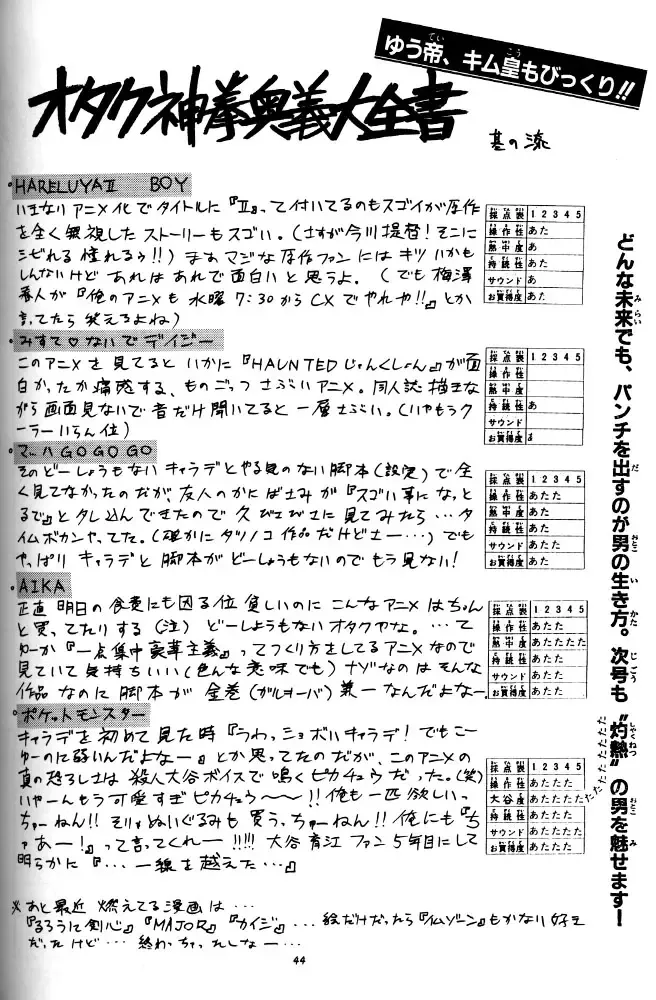 ゆう帝、キム皇もびっくり!!
オタク神拳奥義大全書
基の流
・HARELUYAⅡ BOY
いまないアニメ化でタイトルに『Ⅱ』って付いてるのもスゴイが原作
を全く無視したストーリーもスゴい。(さすが今川提督!そこに
シビれる憧れるゥ!!)まぁマジな原作ファンにはキツいかも
しんないけどあれはあれで面白いと思うよ。(でも梅澤
春人が『俺のアニメも水曜7:30からCXでやれや!!』とか
言ってたら笑えるよね)
採点表 1 2 3 4 5
操作性 あた
熱中度 あ
持続性 あた
サウンド あ
お買得度 あた
・みすて♡ないでデイジー
このアニメを見てると いかに『HAUNTEDじゃんくしょん』が面
白かったか痛感する、ものごっつさぶいアニメ。同人誌描きな
がら画面見ないで音だけ聞いてると一層さぶい。(いやもうク
ーラーいらん位)
採点表 1 2 3 4 5
操作性
熱中度
持続性 あ
サウンド
お買得度
・マッハGOGOGO
そのどーしょうもないキャラデとやる気のない脚本(設定)で全
く見てなかったのだが、友人のかにばさみが『スゴい事になっと
るで』とタレ込んできたので久びさに見てみたら…タ
イムボカンやってた。(確かにタツノコ作品だけどさー…)でも
やっぱりキャラデと脚本がどーしょうもないのでもう見ない!
採点表 1 2 3 4 5
操作性 あたた
熱中度 あた
持続性 あた
サウンド あたた
お買得度 あた
・AIKA
正直明日の食費にも困る位貧しいのにこんなアニメはちゃん
と買ってたりする(注)どーしょうもないオタクやな。…て
ゆーか『一点集中豪華主義』ってつくり方をしてるアニメなので
見ていて気持ちいい(色んな意味でも)ナゾなのはそんな
作品なのに脚本が
採点表 1 2 3 4 5
操作性 あたた
熱中度 あたたたた
持続性 あた
サウンド あたた
お買得度 あた
・ポケットモンスター
キャラデを初めて見た時『うわっショボいキャラデ!でもこー
ゆーのに弱いんだよなー』とか思ってたのだが、このアニメの
真の恐ろしさは殺人大谷ボイスで鳴くピカチュウだった。(笑)
いやーんもう可愛すぎピカチュウ〜〜!!俺も一匹欲しいっ
ちゅーねん!!そりゃぬいぐるみも買うっちゅーねん!!俺にも『ち
ゃあー!』って言ってくれー!!!!!大谷育江ファン5年目にして
明らかに『…一線を越えた…』
採点表 1 2 3 4 5
操作性 あたたた
大谷度 あたたたたたたたたたたた
持続性 あたたた
サウンド あたたたた
お買得度 あたたた
※あと最近燃えてる漫画は…
『るろうに剣心』『MAJOR』『カイジ』…絵だけだったら『仏ゾーン』もかない好き
だったけど…終わっちゃったしなー…
どんな未来でも、パンチを出すのが男の生き方。次号も“灼熱”の男を魅せます!
44